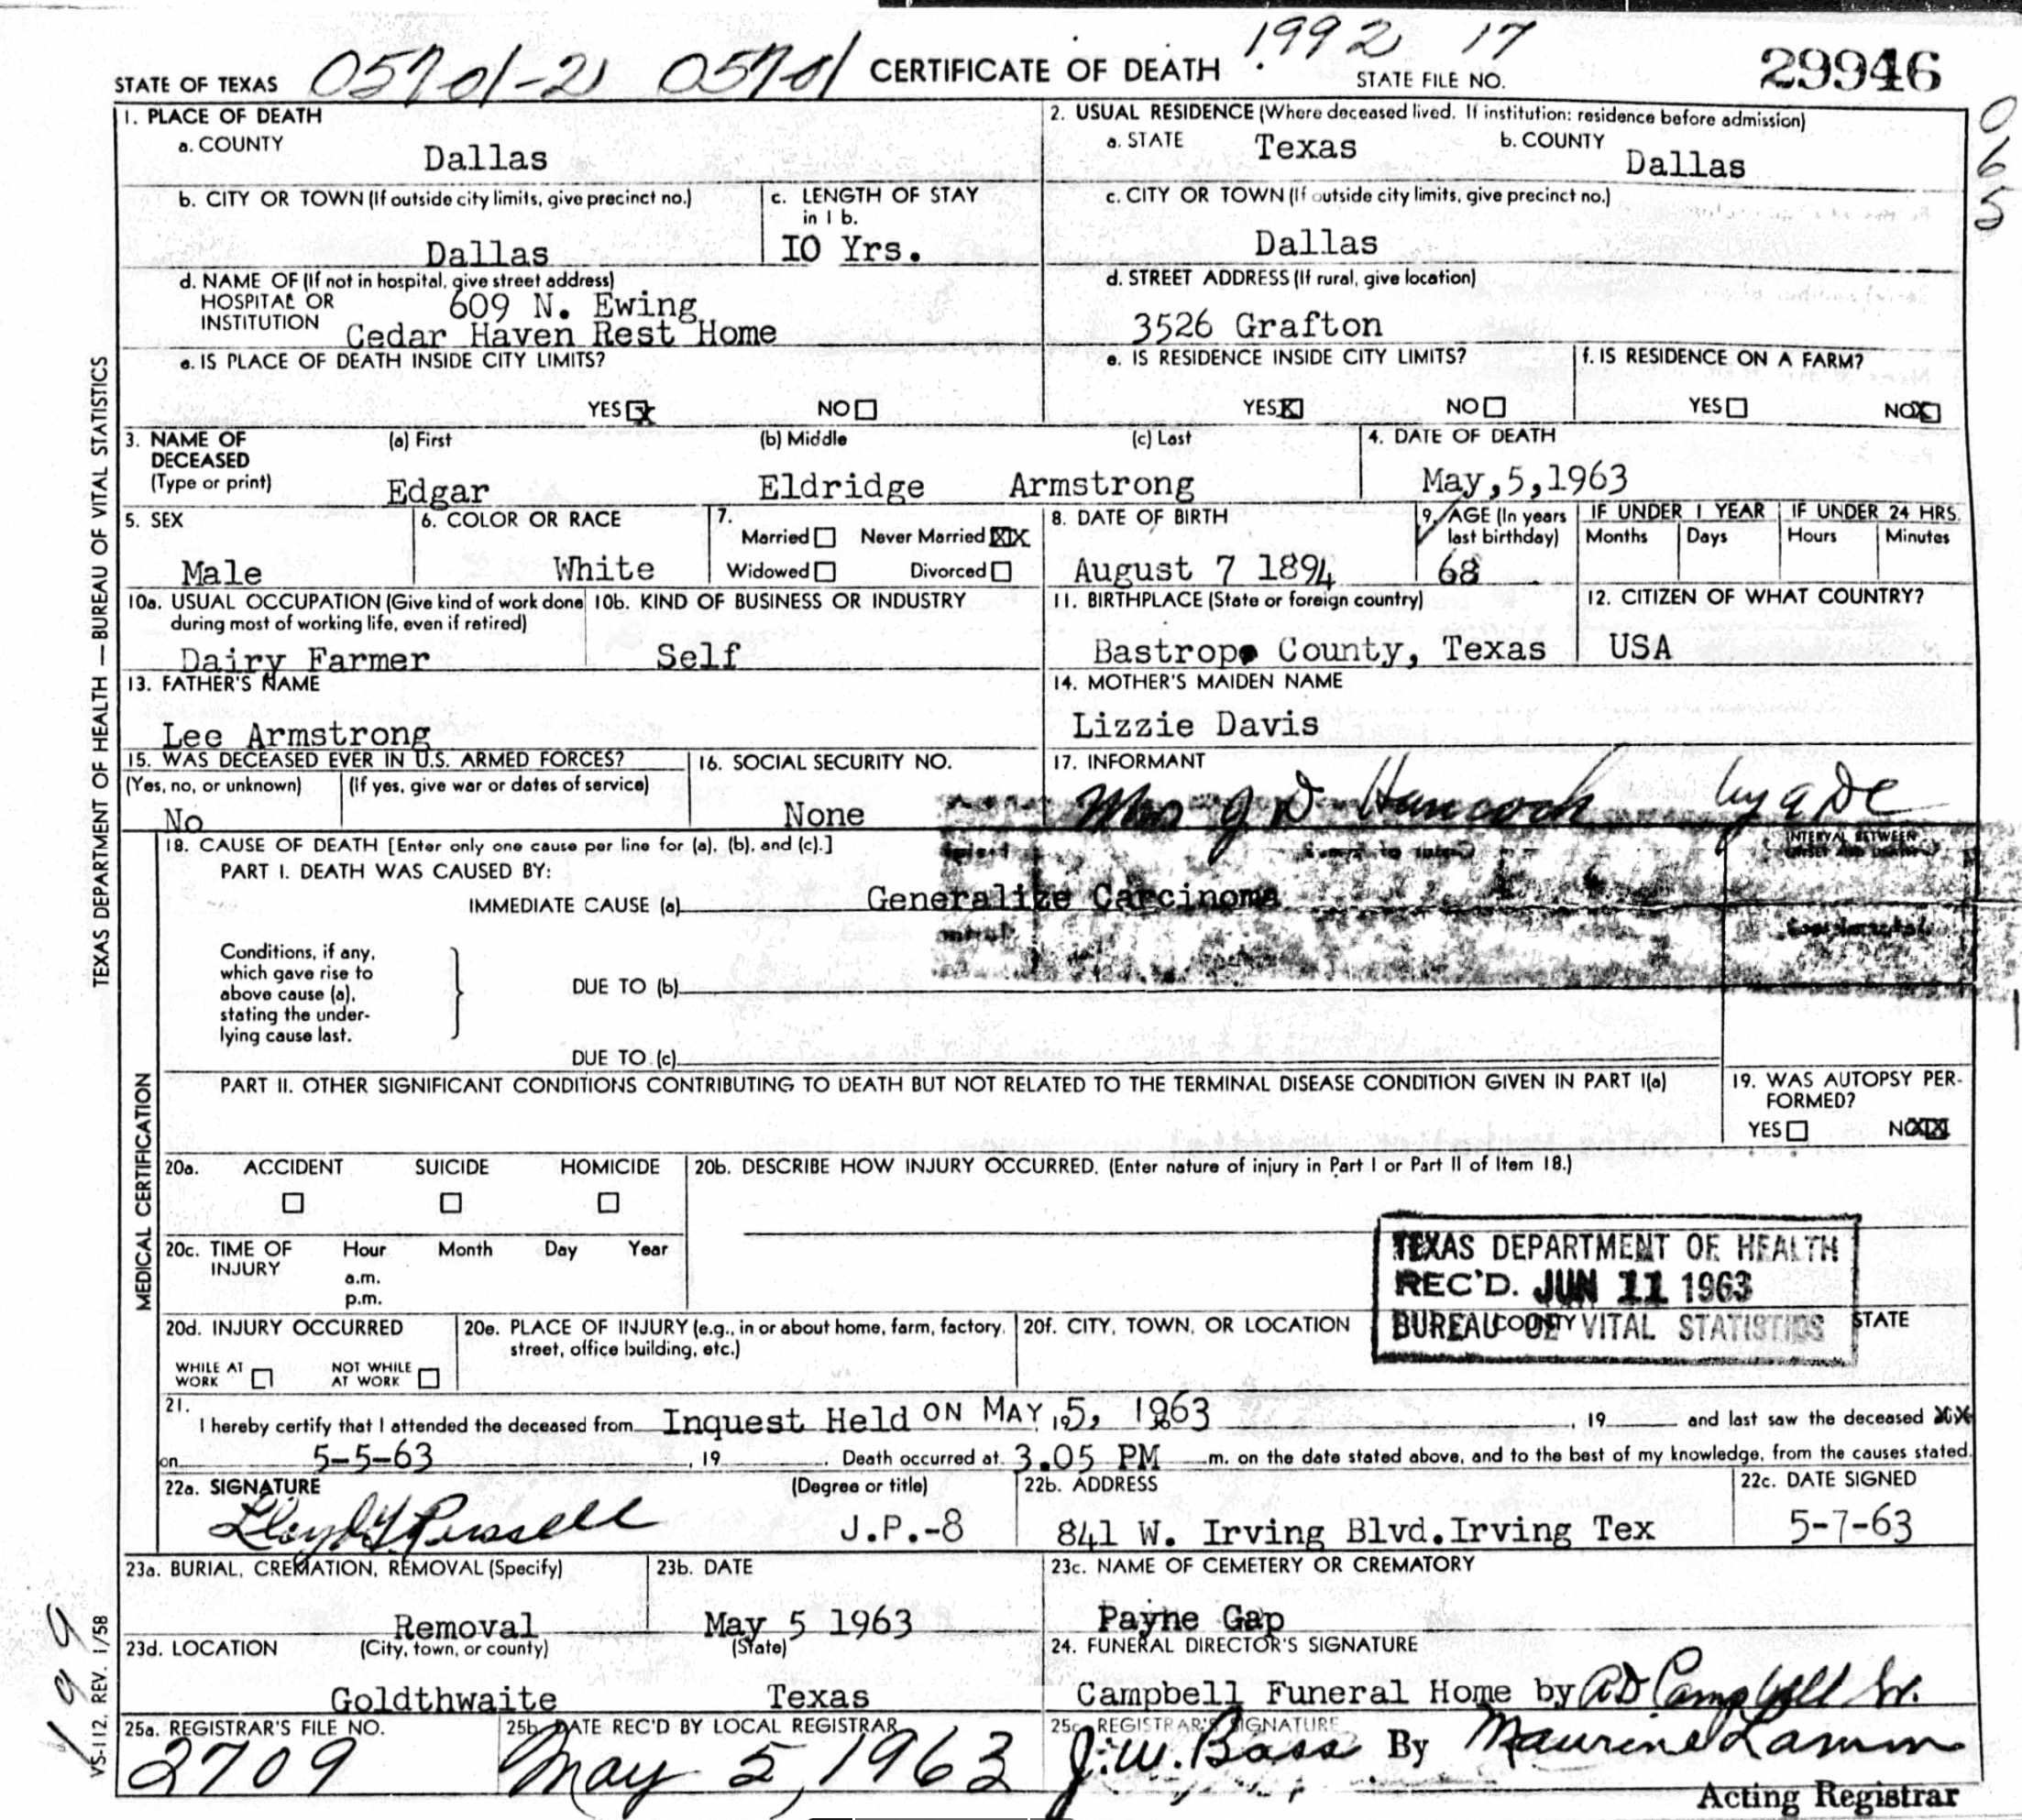 STATE OF TEXAS 05701-2 05701 CERTIFICATE OF DEATH 1992 17 STATE FILE NO. 29946
065
1. PLACE OF DEATH
a. COUNTY Dallas
2. USUAL RESIDENCE (Where deceased lived. If institution: residence before admission)
a. STATE Texas b. COUNTY Dallas
b. CITY OR TOWN (If outside city limits, give precinct no.) Dallas
c. LENGTH OF STAY in 1 b. IO Yrs.
c. CITY OR TOWN (If outside city limits, give precinct no.) Dallas
d. NAME OF (If not in hospital, give street address)
HOSPITAL OR INSTITUTION
609 N. Ewing
Cedar Haven Rest Home
d. STREET ADDRESS (If rural, give location)
3526 Grafton
e. IS PLACE OF DEATH INSIDE CITY LIMITS?
YES X NO
e. IS RESIDENCE INSIDE CITY LIMITS?
YES X NO
f. IS RESIDENCE ON A FARM?
YES NO X
3. NAME OF DECEASED (Type or print)
(a) First (b) Middle (c) Last
Edgar Eldridge Armstrong
4. DATE OF DEATH
May,5,1963
5. SEX
Male
6. COLOR OR RACE
White
7. Married Never Married XIX
Widowed Divorced
8. DATE OF BIRTH
August 7 1894
9. AGE (In years last birthday)
68
IF UNDER 1 YEAR
Months Days
IF UNDER 24 HRS.
Hours Minutes
10a. USUAL OCCUPATION (Give kind of work done during most of working life, even if retired)
Dairy Farmer
10b. KIND OF BUSINESS OR INDUSTRY
Self
11. BIRTHPLACE (State or foreign country)
Bastrop County, Texas
12. CITIZEN OF WHAT COUNTRY?
USA
13. FATHER'S NAME
Lee Armstrong
14. MOTHER'S MAIDEN NAME
Lizzie Davis
15. WAS DECEASED EVER IN U.S. ARMED FORCES?
(Yes, no, or unknown) (If yes, give war or dates of service)
No
16. SOCIAL SECURITY NO.
None
17. INFORMANT
Mrs J D Hancock by
18. CAUSE OF DEATH [Enter only one cause per line for (a), (b), and (c).]
INTERVAL BETWEEN ONSET AND DEATH
PART I. DEATH WAS CAUSED BY:
IMMEDIATE CAUSE (a) Generalize Carcinoma
Conditions, if any, which gave rise to above cause (a), stating the underlying cause last.
DUE TO (b)
DUE TO (c)
PART II. OTHER SIGNIFICANT CONDITIONS CONTRIBUTING TO DEATH BUT NOT RELATED TO THE TERMINAL DISEASE CONDITION GIVEN IN PART I(a)
19. WAS AUTOPSY PERFORMED?
YES NO XX
20a. ACCIDENT SUICIDE HOMICIDE
20b. DESCRIBE HOW INJURY OCCURRED. (Enter nature of injury in Part I or Part II of Item 18.)
20c. TIME OF INJURY Hour Month Day Year
a.m.
p.m.
TEXAS DEPARTMENT OF HEALTH
REC'D. JUN 11 1963
BUREAU OF VITAL STATISTICS
20d. INJURY OCCURRED
WHILE AT WORK NOT WHILE AT WORK
20e. PLACE OF INJURY (e.g., in or about home, farm, factory, street, office building, etc.)
20f. CITY, TOWN, OR LOCATION COUNTY STATE
21.
I hereby certify that I attended the deceased from Inquest Held ON MAY 5, 1963, 19 and last saw the deceased
on 5-5-63, 19 . Death occurred at 3.05 PM m. on the date stated above, and to the best of my knowledge, from the causes stated.
22a. SIGNATURE (Degree or title)
Lloyd Russell J.P.-8
22b. ADDRESS
841 W. Irving Blvd.Irving Tex
22c. DATE SIGNED
5-7-63
23a. BURIAL, CREMATION, REMOVAL (Specify)
Removal
23b. DATE
May 5 1963
23c. NAME OF CEMETERY OR CREMATORY
Payne Gap
23d. LOCATION (City, town, or county) (State)
Goldthwaite Texas
24. FUNERAL DIRECTOR'S SIGNATURE
Campbell Funeral Home by AD Campbell Sr.
25a. REGISTRAR'S FILE NO.
2709
25b. DATE REC'D BY LOCAL REGISTRAR
May 5, 1963
25c. REGISTRAR'S SIGNATURE
J.W. Bass By Maurine Lamm
Acting Registrar
TEXAS DEPARTMENT OF HEALTH — BUREAU OF VITAL STATISTICS
MEDICAL CERTIFICATION
VS-112, REV. 1/58
199